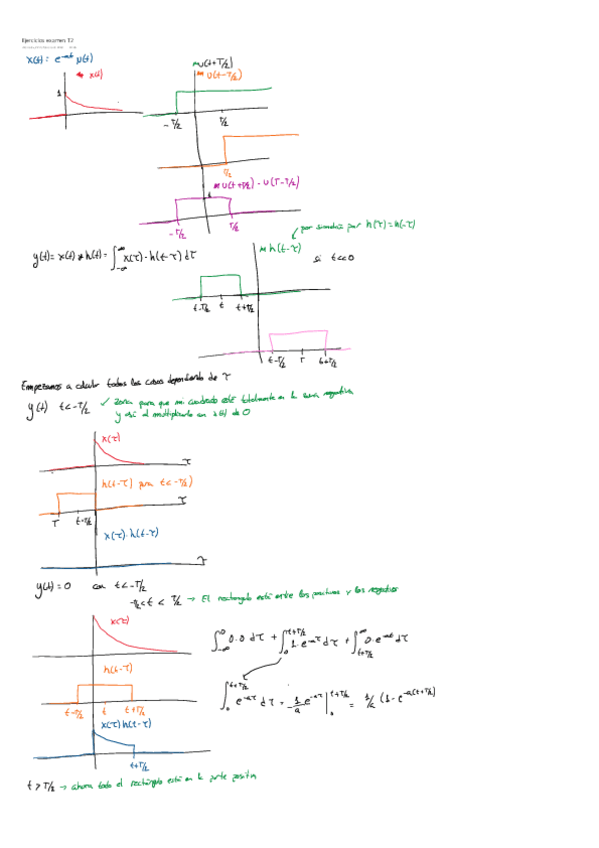 Ejercicios examen T2
x(t) = e^-at u(t)
x(t)
1
u(t+T/2)
u(t-T/2)
-T/2
T/2
T/2
u(t+T/2) - u(T-T/2)
1
-T/2
T/2
por simetría par h(τ)=h(-τ)
y(t)= x(t) * h(t) = ∫_-∞^∞ x(τ)·h(t-τ) dτ
h(t-τ)
si t<<0
t-T/2 t t+T/2
t-T/2 T t+T/2
Empezamos a calcular todos los casos dependiendo de τ
y(t) t<-T/2 ✓ Zona para que mi cuadrado esté totalmente en la zona negativa
y así al multiplicarlo en x(t) dé 0
x(τ)
τ
h(t-τ) para t<-T/2)
τ
T t+T/2
x(τ)·h(t-τ)
τ
y(t)=0 con t<-T/2
-T/2<t < T/2 → El rectángulo está entre los positivos y los negativos
x(τ)
∫_-∞^0 0·0 dτ + ∫_0^t+T/2 1·e^-aτ dτ + ∫_t+T/2^∞ 0·e^-aτ dτ
h(t-τ)
t-T/2 t t+T/2
∫_0^t+T/2 e^-aτ dτ = -1/a e^-aτ |_0^t+T/2 = 1/a (1-e^-a(t+T/2))
x(τ)h(t-τ)
t+T/2
t > T/2 → ahora todo el rectángulo está en la parte positiva